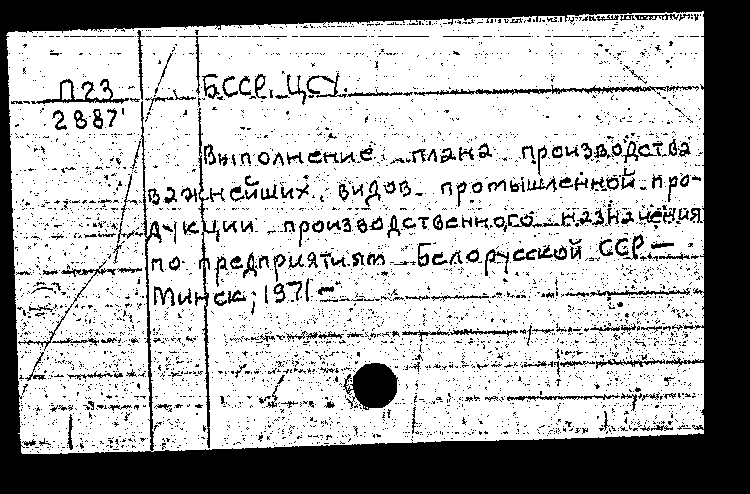 П23
2887
БССР. ЦСУ.
Выполнение плана производства
важнейших видов промышленной про-
дукции производственного назначения
по предприятиям Белорусской ССР.—
Минск, 1971 —